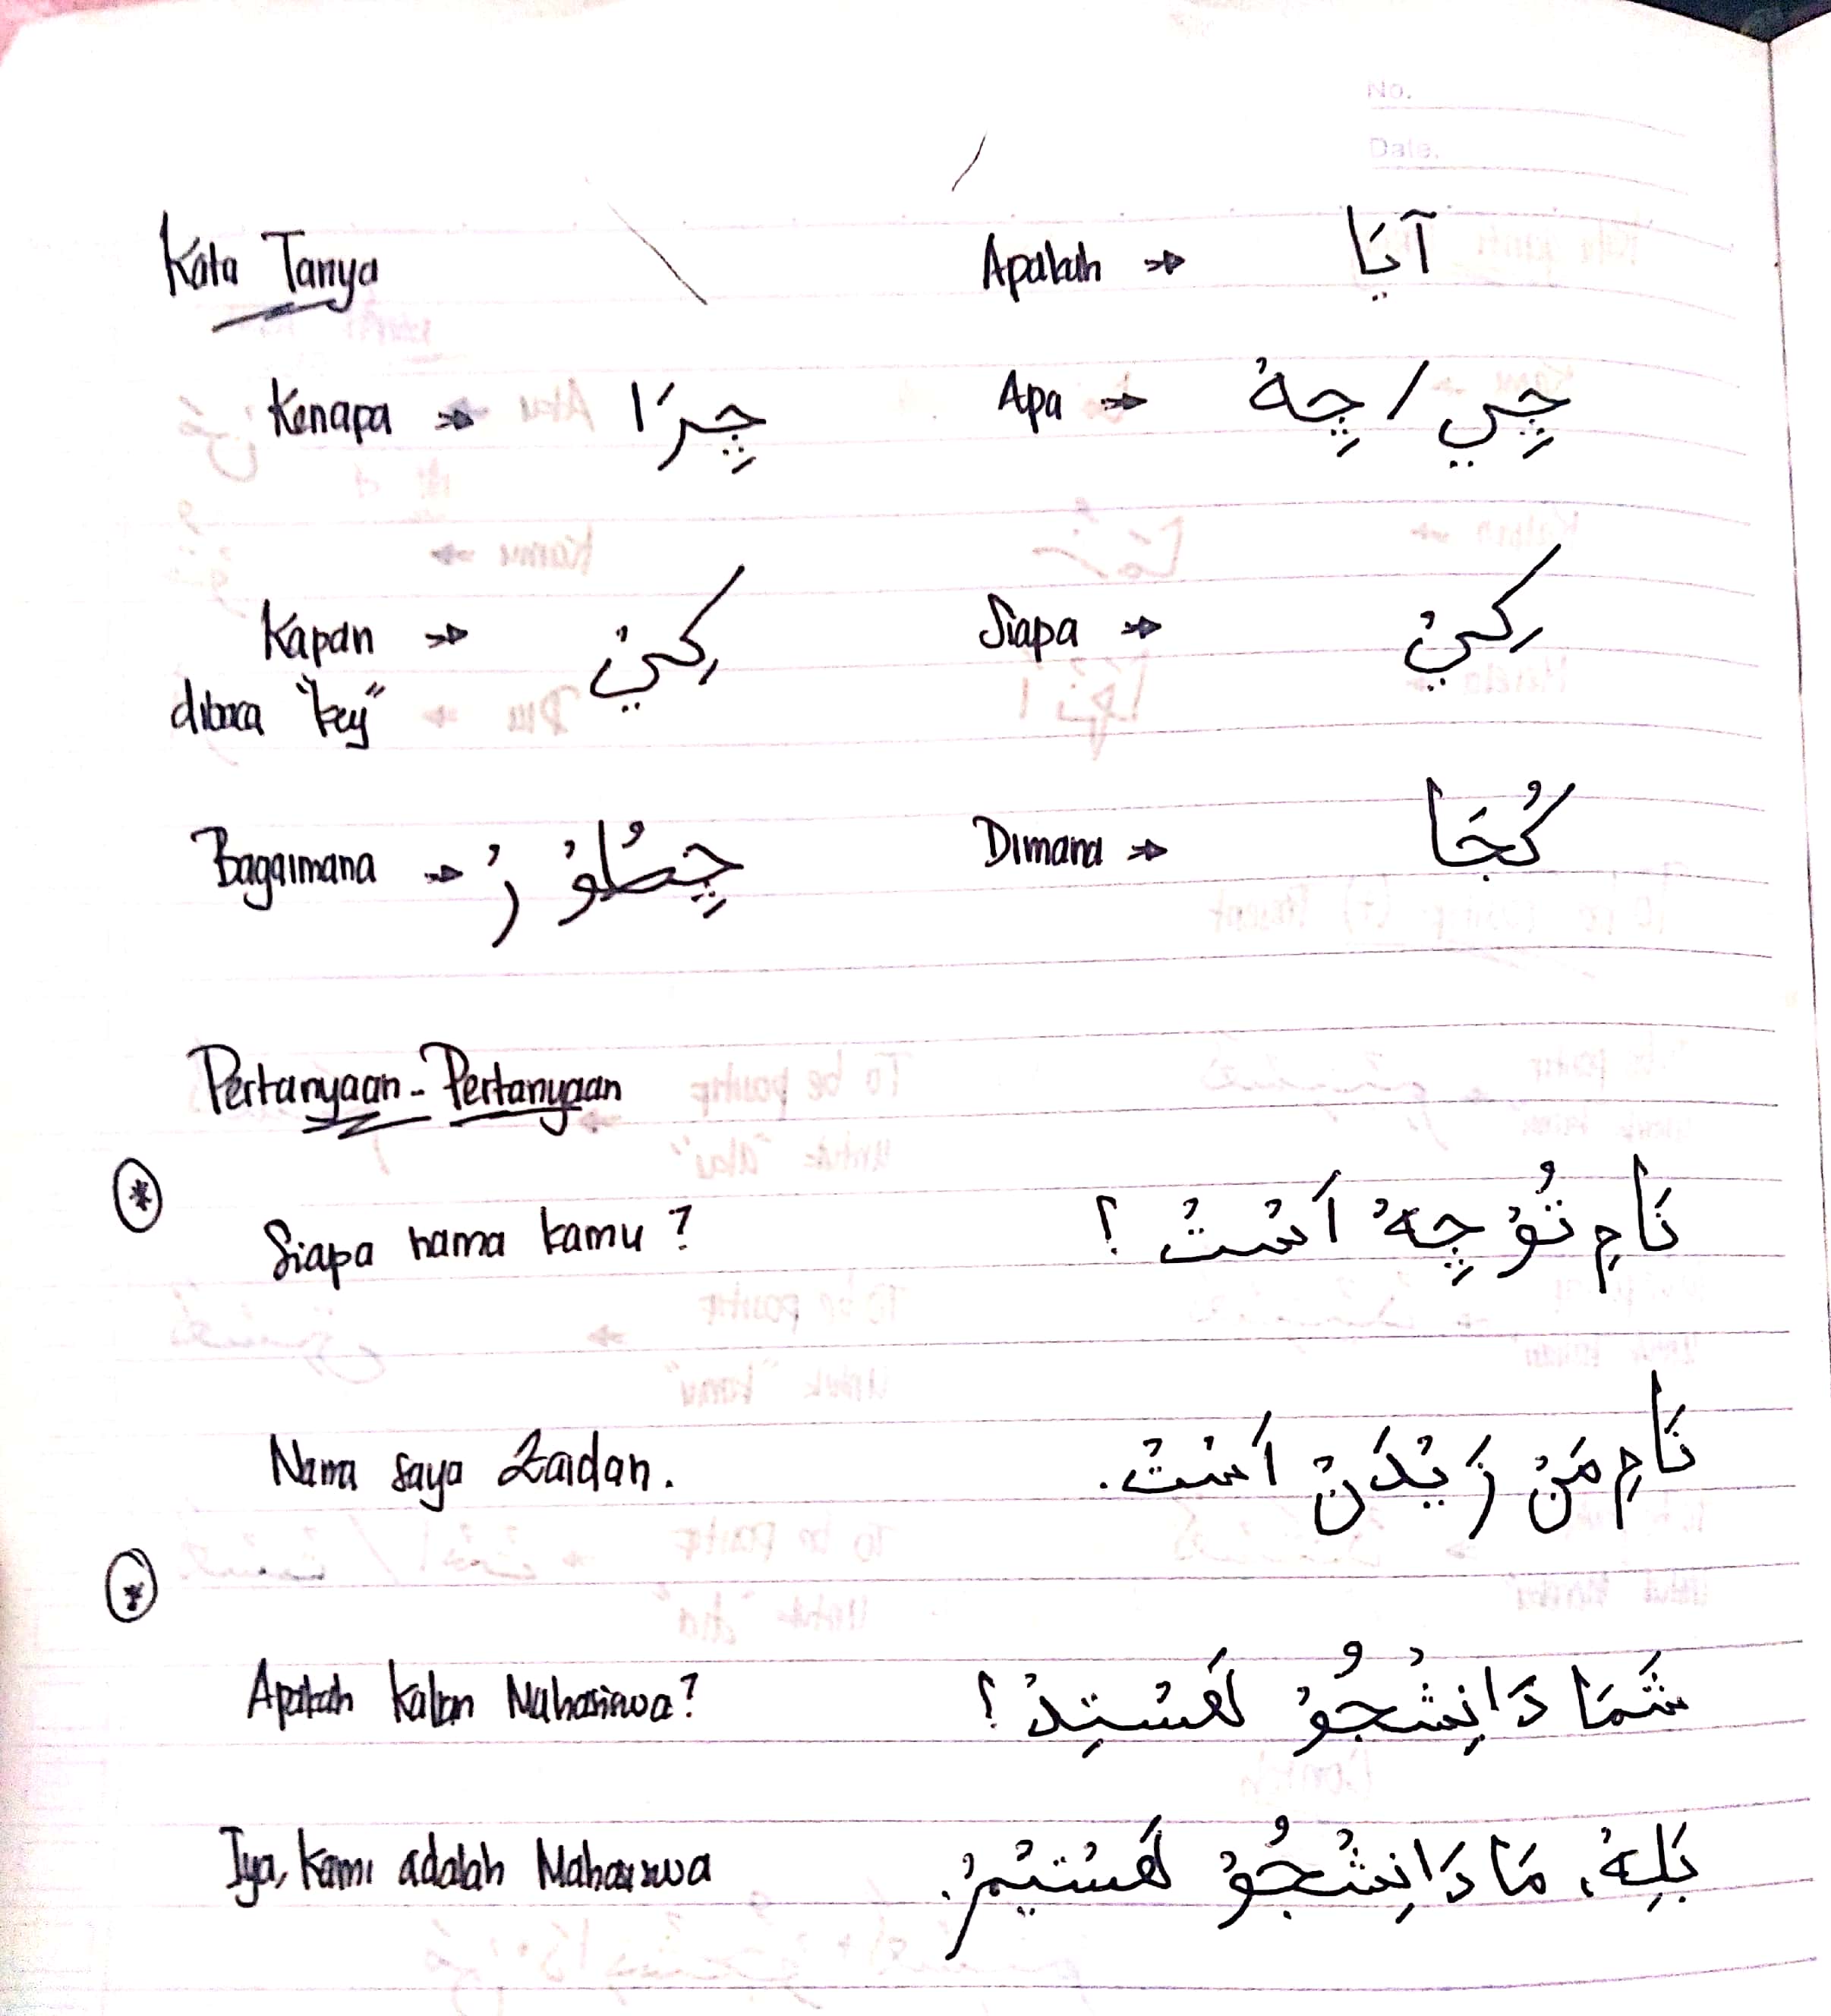 No.
Date.
Kata Tanya
Apakah → آيَا
Kenapa → چِرَا
Apa → چِي / چِهْ
Kapan → کِيْ
dibaca "key"
Siapa → کِيْ
Bagaimana → چِطُوْرْ
Dimana → کُجَا
Pertanyaan-Pertanyaan
Siapa nama kamu ? نَامِ تُوْ چِهْ اَسْتْ ؟
Nama saya Zaidan. نَامِ مَنْ زَيْدَنْ اَسْتْ.
Apakah kalian Mahasiswa? شُمَا دَانِشْجُوْ هَسْتِدْ ؟
Iya, kami adalah Mahasiswa بَلِهْ، مَا دَانِشْجُوْ هَسْتِيْمْ.